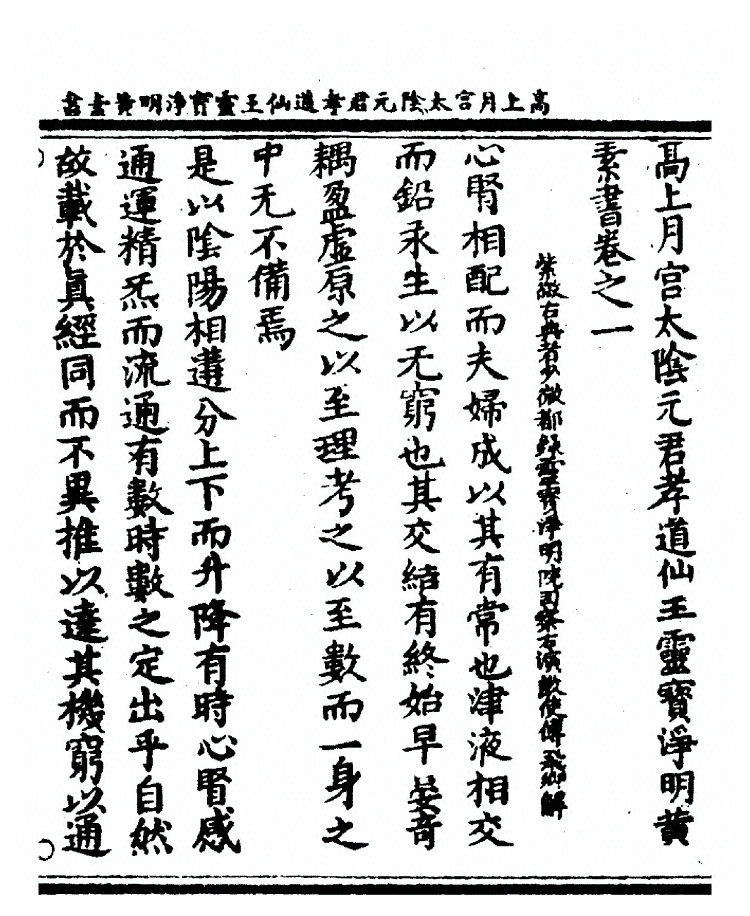 高上月宮太陰元君孝道仙王靈寶淨明黃素書
高上月宮太陰元君孝道仙王靈寶淨明黃
素書卷之一
紫微右典者少微都錄靈寶淨明院司察右演教使傅飛卿解
心腎相配而夫婦成以其有常也津液相交
而鉛汞生以无窮也其交結有終始早晏奇
耦盈虛原之以至理考之以至數而一身之
中无不備焉
是以陰陽相遘分上下而升降有時心腎感
通運精炁而流通有數時數之定出乎自然
故載於真經同而不異推以達其機窮以通